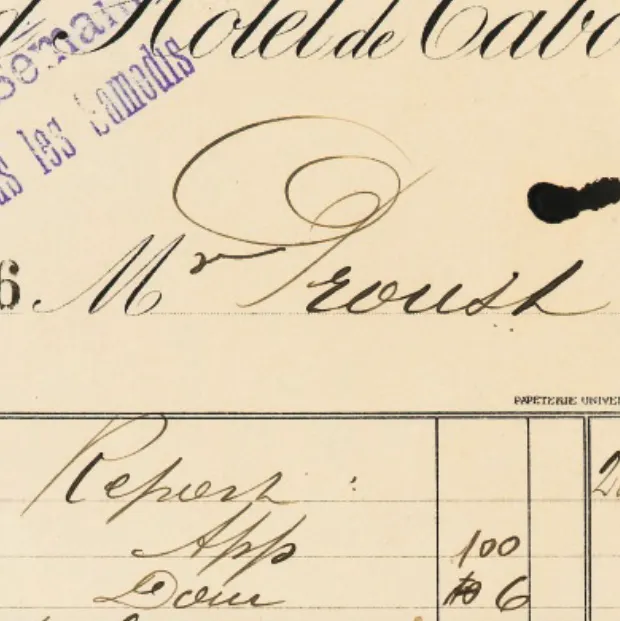 d Hotel de Cabo
Semai
us les Samedis
6. Mr Proust
PAPETERIE UNIVE
Report :
App 100
Dom 6
2